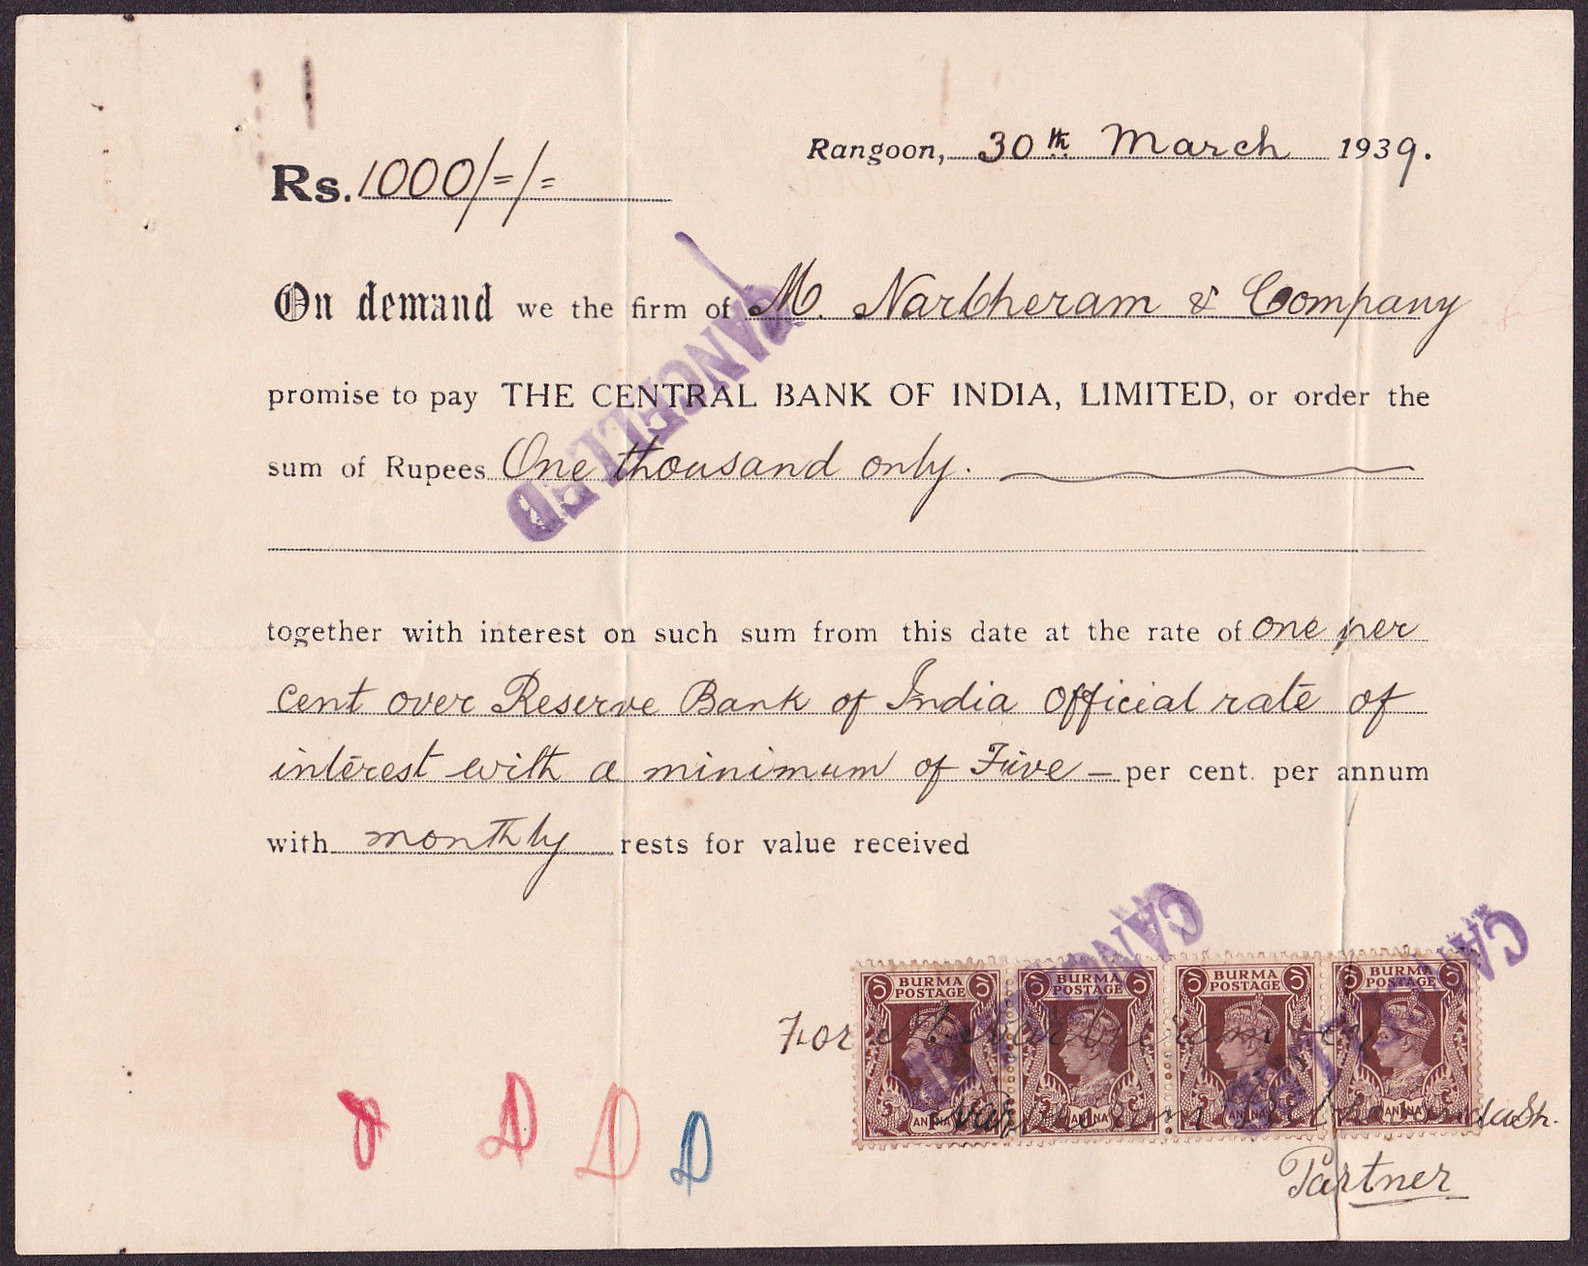 Rangoon, 30th March 1939.
Rs. 1000/=/=
On demand we the firm of M. Narbheram & Company
promise to pay THE CENTRAL BANK OF INDIA, LIMITED, or order the
sum of Rupees One thousand only.
CANCELLED
together with interest on such sum from this date at the rate of one per
cent over Reserve Bank of India Official rate of
interest with a minimum of Five – per cent. per annum
with monthly rests for value received
CANCELLED
CANCELLED
BURMA POSTAGE BURMA POSTAGE BURMA POSTAGE BURMA POSTAGE
For M. Narbheram & Co
ANNA ANNA ANNA ANNA
Partner
D D D